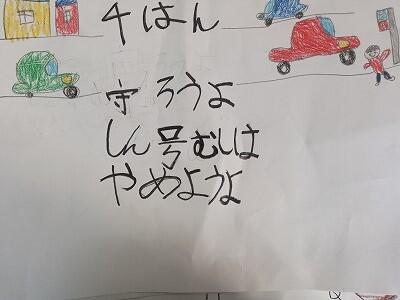 4はん
守ろうよ
しん号むしは
やめようよ